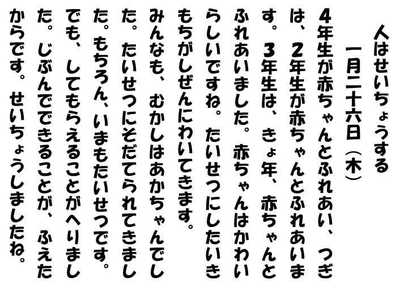 人はせいちょうする
一月二十六日（木）
４年生が赤ちゃんとふれあい、つぎ
は、２年生が赤ちゃんとふれあいま
す。３年生は、きょ年、赤ちゃんと
ふれあいました。赤ちゃんはかわい
らしいですね。たいせつにしたいき
もちがしぜんにわいてきます。
みんなも、むかしはあかちゃんでし
た。たいせつにそだてられてきまし
た。もちろん、いまもたいせつです。
でも、してもらえることがへりまし
た。じぶんでできることが、ふえた
からです。せいちょうしましたね。